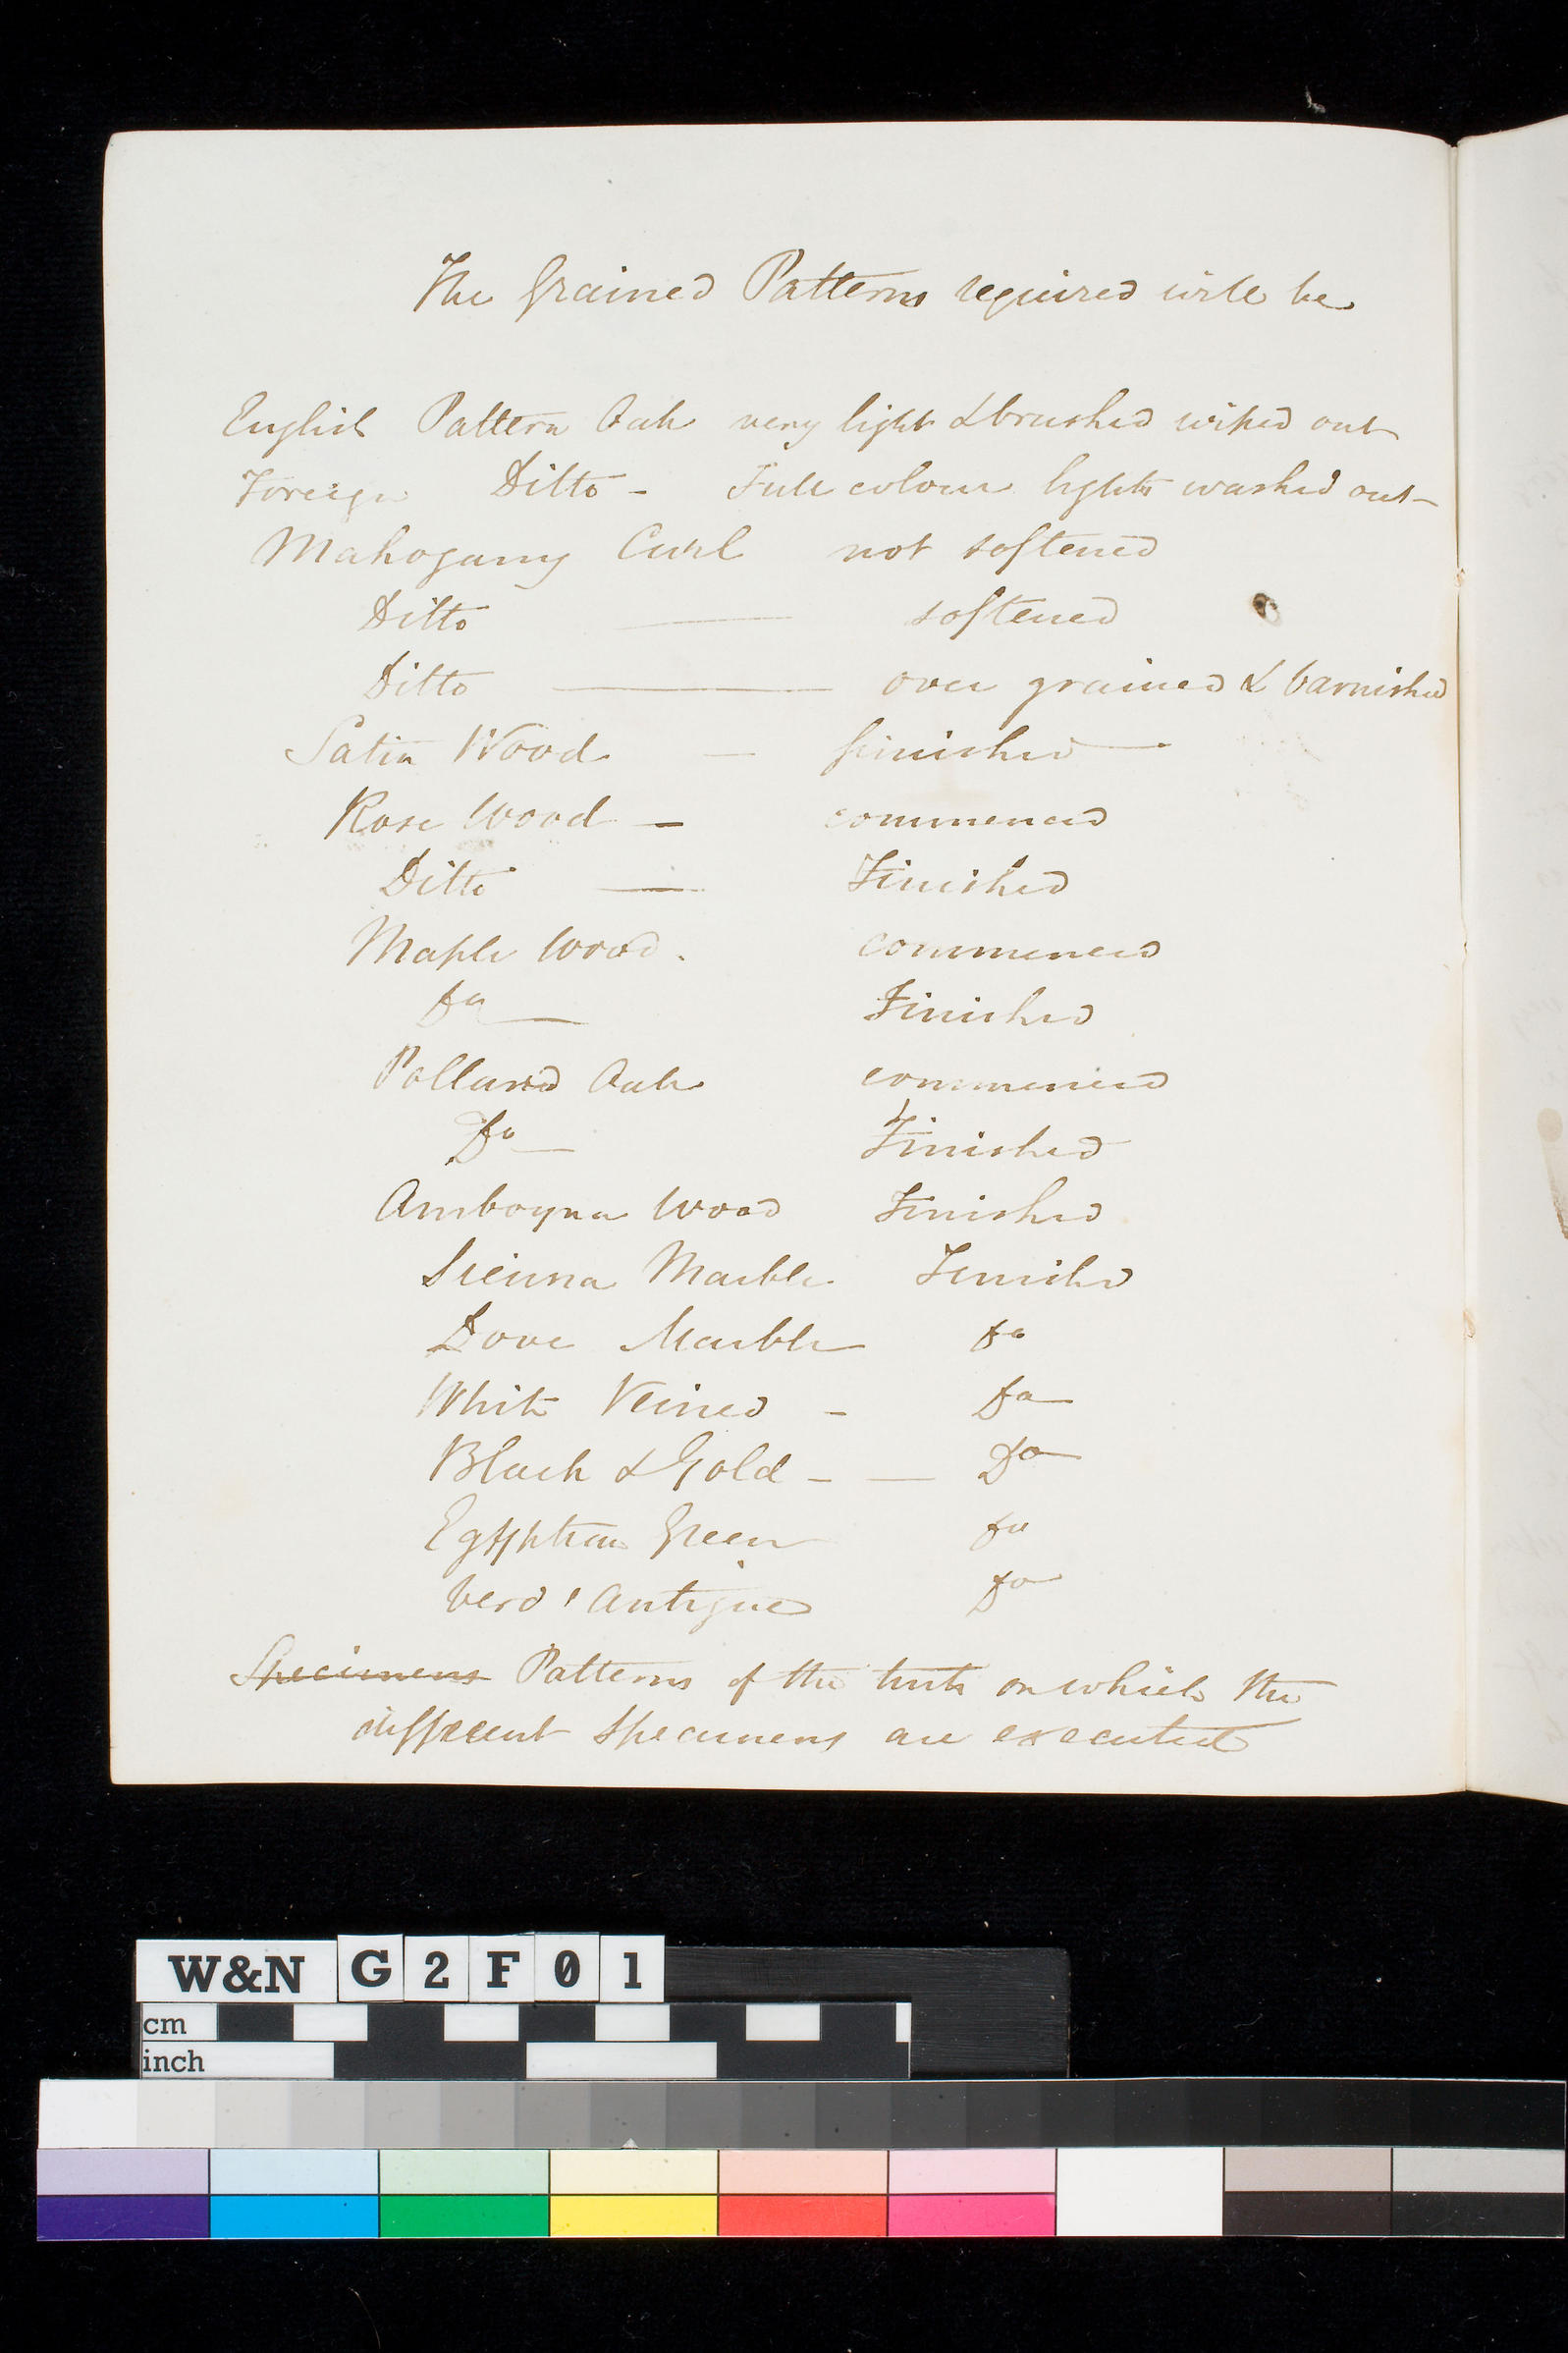 The Grained Patterns required will be
English Pattern Oak very light & brushed wiped out
Foreign Ditto - Full colour lights washed out -
Mahogany Curl not softened
Ditto — softened
Ditto — over grained & varnished
Satin Wood — finished —
Rose Wood — commenced
Ditto — Finished
Maple Wood. commenced
Do — Finished
Pollard Oak commenced
Do — Finished
Amboyna Wood Finished
Sienna Marble Finished
Dove Marble Do
White Veined - Do
Black & Gold - — Do
Egyptian Green Do
Verd' Antique Do
Specimens Patterns of the tints on which the
different specimens are executed
W&N G 2 F 0 1
cm
inch